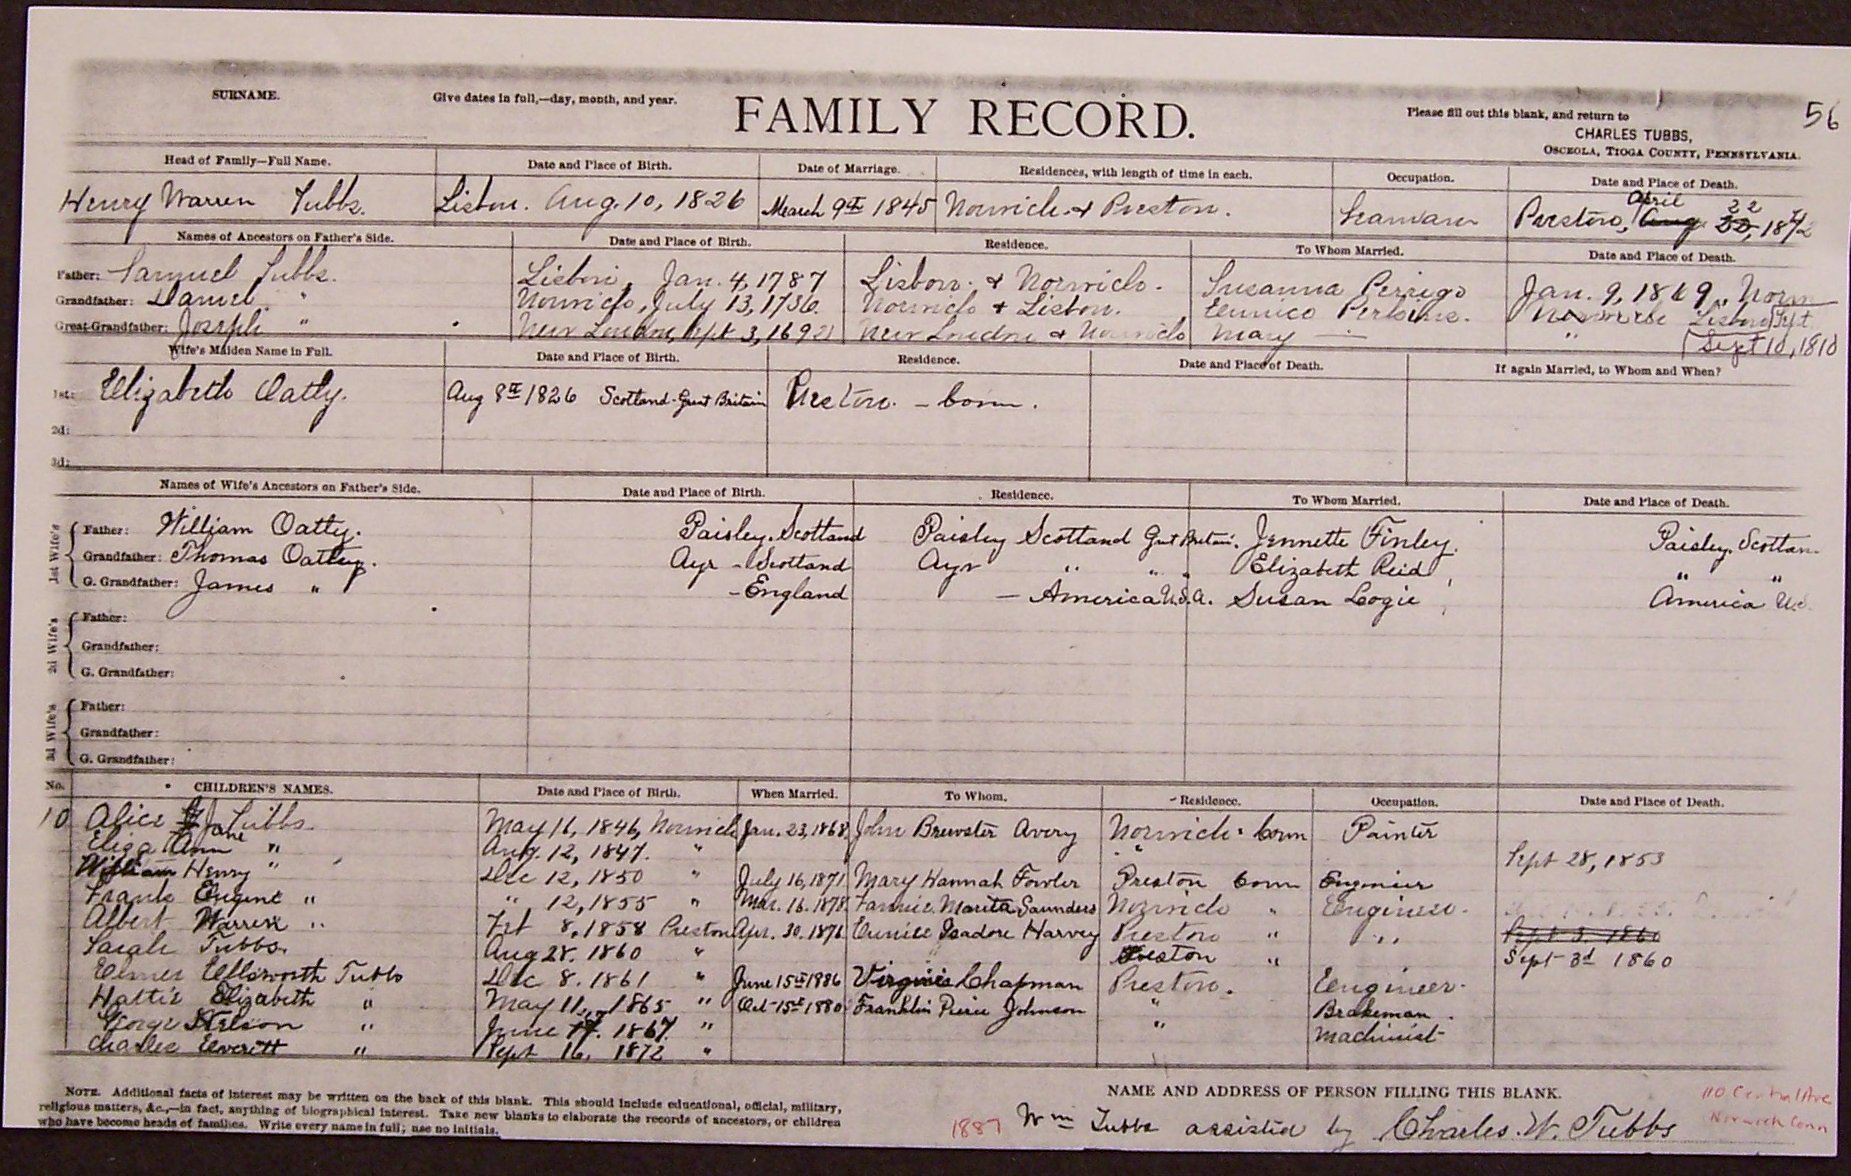 SURNAME. Give dates in full,—day, month, and year. FAMILY RECORD. Please fill out this blank, and return to 56
CHARLES TUBBS,
OSCEOLA, TIOGA COUNTY, PENNSYLVANIA.
Head of Family—Full Name. Date and Place of Birth. Date of Marriage. Residences, with length of time in each. Occupation. Date and Place of Death.
April 22
Henry Warren Tubbs. Lisbon. Aug. 10, 1826 March 9th 1845 Norwich & Preston. Preston, Aug 22, 1872
Names of Ancestors on Father's Side. Date and Place of Birth. Residence. To Whom Married. Date and Place of Death.
Father: Samuel Tubbs. Lisbon, Jan. 4, 1787 Lisbon & Norwich. Susanna Perrigo Jan. 9, 1869, Norw
Grandfather: Daniel " Norwich, July 13, 1736. Norwich & Lisbon. Eunice Perkins. Lisbon Sept
Great-Grandfather: Joseph " New London, Sept 3, 1692 New London & Norwich Mary — " Sept 10, 1810
Wife's Maiden Name in Full. Date and Place of Birth. Residence. Date and Place of Death. If again Married, to Whom and When?
1st: Elizabeth Oatly. Aug 8th 1826 Scotland-Great Britain Preston - Conn.
2d:
3d:
Names of Wife's Ancestors on Father's Side. Date and Place of Birth. Residence. To Whom Married. Date and Place of Death.
1st Wife's
Father: William Oatly. Paisley. Scotland Paisley Scotland Grt Britain. Jennette Finley. Paisley. Scotlan
Grandfather: Thomas Oatley. Ayr - Scotland Ayr " " " Elizabeth Reid " "
G. Grandfather: James " - England — America U.S.A. Susan Logie America U.S.
2d Wife's
Father:
Grandfather:
G. Grandfather:
3d Wife's
Father:
Grandfather:
G. Grandfather:
No. CHILDREN'S NAMES. Date and Place of Birth. When Married. To Whom. Residence. Occupation. Date and Place of Death.
10 Alice Jane Tubbs. May 16, 1846, Norwich Jan. 23, 1868 John Brewster Avery Norwich Conn Painter
Eliza Ann " Aug. 12, 1847. " " Sept 28, 1853
William Henry " Dec 12, 1850 " July 16, 1871 Mary Hannah Fowler Preston Conn Engineer
Frank Eugene " " 12, 1855 " Mar. 16. 1878. Fannie Marita Saunders Norwich " Engineer.
Albert Warren " Feb 8, 1858 Preston Apr. 30. 1876 Eunice Isadore Harvey Preston " " Sept 3 1860
Sarah Tubbs. Aug 28. 1860 " Preston " Sept 3d 1860
Elmer Ellsworth Tubbs Dec 8. 1861 " June 15th 1886 Virginia Chapman Preston. Engineer.
Hattie Elizabeth " May 11, 1865 " Oct 15th 1880 Franklin Pierce Johnson " Brakeman.
George Nelson " June 17. 1867. " " Machinist
Charles Everitt " Sept 16. 1872 "
NOTE. Additional facts of interest may be written on the back of this blank. This should include educational, official, military,
religious matters, &c.,—in fact, anything of biographical interest. Take new blanks to elaborate the records of ancestors, or children
who have become heads of families. Write every name in full; use no initials.
NAME AND ADDRESS OF PERSON FILLING THIS BLANK.
1887 Wm Tubbs assisted by Charles W. Tubbs
110 Central Ave
Norwich Conn